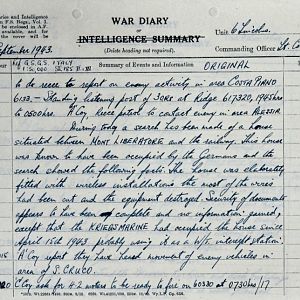 and Intelligence
F.S. Regs., Vol. I
be enclosed in A.F.
available, and for
the cover will be
WAR DIARY
OF
INTELLIGENCE SUMMARY
(Delete heading not required).
Unit 6 Lincolns.
Commanding Officer Lt. Co
September 1943.
G.S.G.S ITALY
Summary of Events and Information
ORIGINAL
to do recce to report on enemy activity in area COSTA PIANO
6133 - Standing listening post of 3 ORs at Ridge 617320, 1945 hrs
to 0500 hrs. A Coy recce patrol to contact enemy in area ALESSIA
During today a search has been made of a house
situated between MONT LIBERATORE and the railway. This house
was known to have been occupied by the Germans and the
search showed the following facts. The house was elaborately
fitted with wireless installations, the most of the wires
had been cut and the equipment destroyed. Security of documents
appears to have been complete and no information gained,
except that the KRIEGSMARINE had occupied the house since
April 15th 1943 probably using it as a W/T intercept station.
A Coy report they have heard movement of enemy vehicles in
area of S. CRUCO.
C Coy ask for 4.2 mortars to be ready to fire on 60330 at 0730 hrs/17